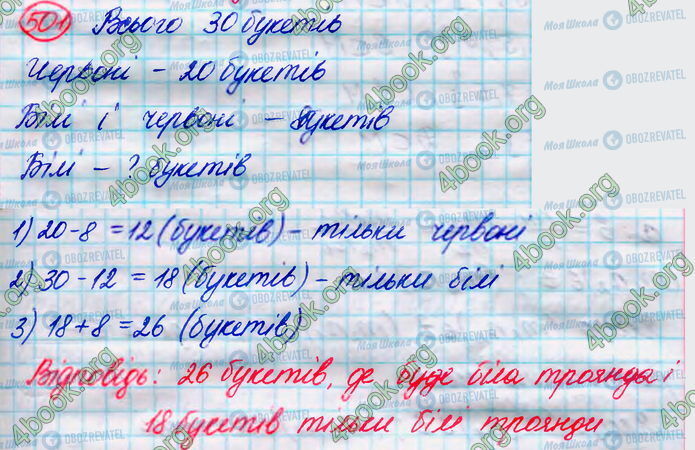 501 Всього 30 букетів
Червоні - 20 букетів
Білі і червоні - 8букетів
Білі - ? букетів
1) 20-8 = 12 (букетів) - тільки червоні
2) 30 - 12 = 18 (букетів) - тільки білі
3) 18+8 = 26 (букетів)
Відповідь: 26 букетів, де буде біла троянда і
18 букетів тільки білі троянди
4book.org
Моя Школа
OBOZREVATEL